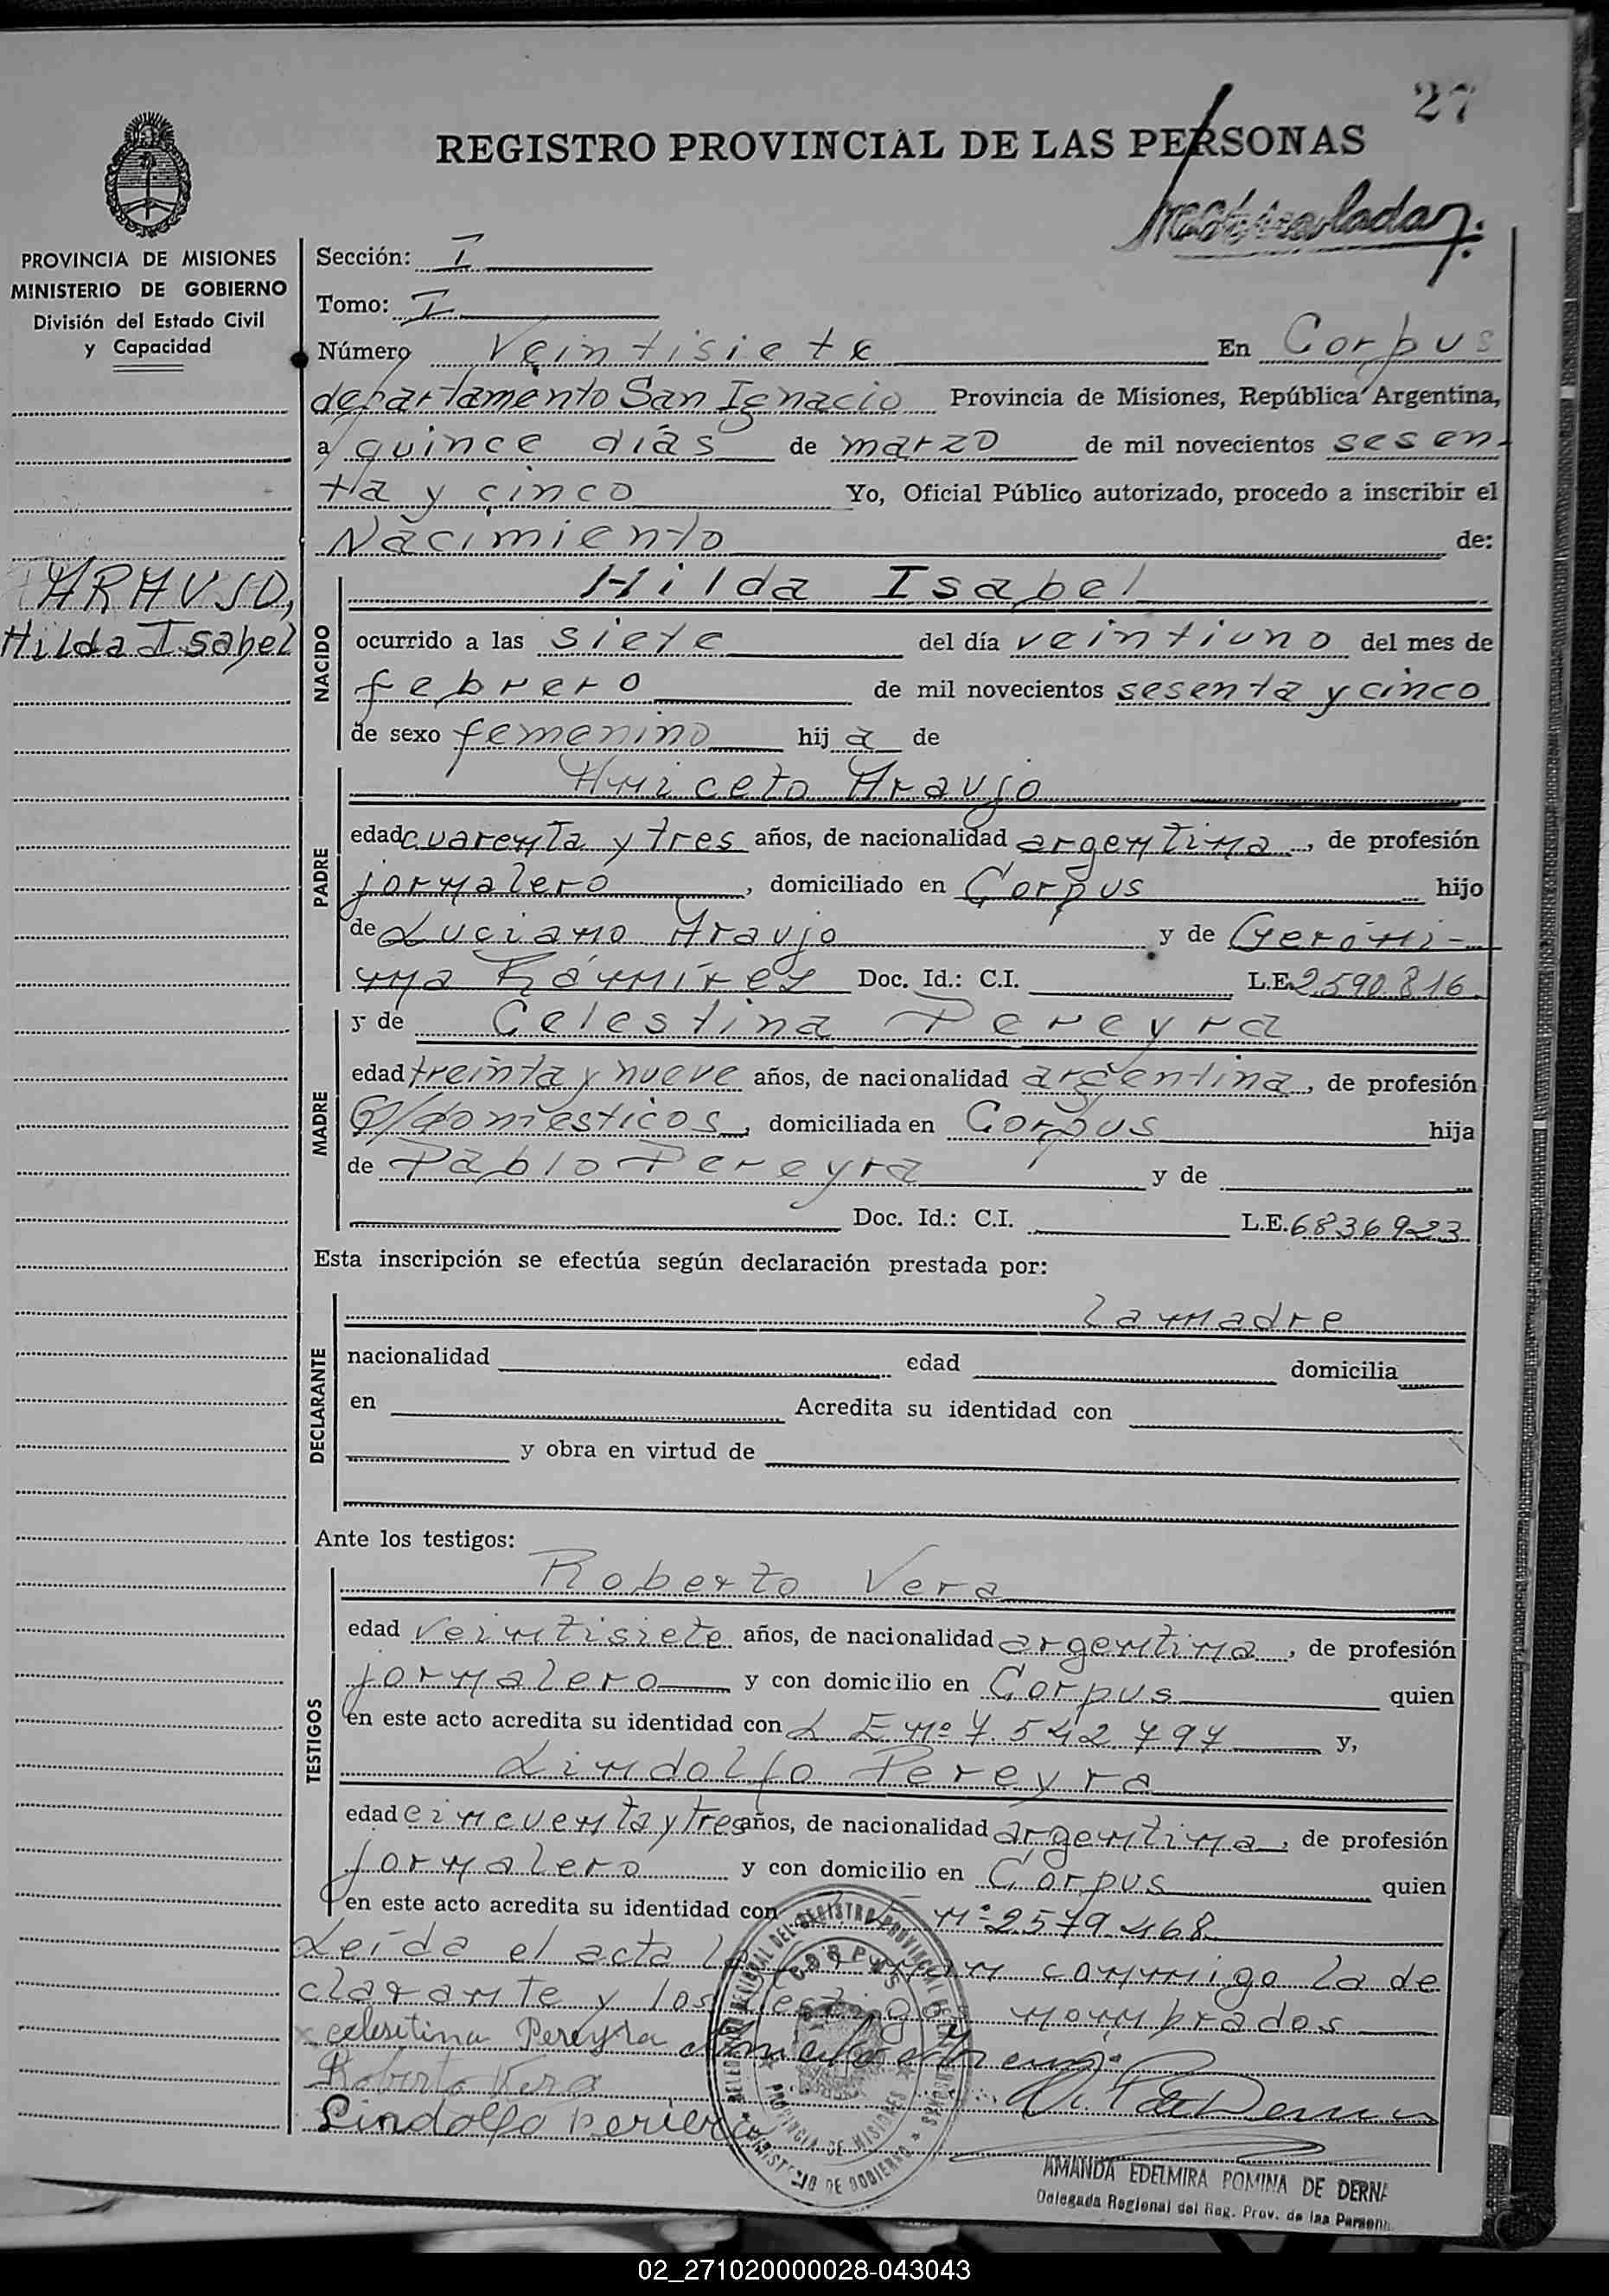 27
REGISTRO PROVINCIAL DE LAS PERSONAS
PROVINCIA DE MISIONES
MINISTERIO DE GOBIERNO
División del Estado Civil
y Capacidad
ARAUJO,
Hilda Isabel
Sección: I
Tomo: I
Número Veintisiete En Corpus
departamento San Ignacio Provincia de Misiones, República Argentina,
a quince días de marzo de mil novecientos sesen-
ta y cinco Yo, Oficial Público autorizado, procedo a inscribir el
Nacimiento de:
NACIDO
Hilda Isabel
ocurrido a las siete del día veintiuno del mes de
febrero de mil novecientos sesenta y cinco
de sexo femenino hija de
PADRE
Aniceto Araujo
edad cuarenta y tres años, de nacionalidad argentina, de profesión
jornalero, domiciliado en Corpus hijo
de Luciano Araujo y de Geróni-
ma Rámírez Doc. Id.: C.I. L.E. 2590.816.
MADRE
y de Celestina Pereyra
edad treinta y nueve años, de nacionalidad argentina, de profesión
Q/domésticos, domiciliada en Corpus hija
de Pablo Pereyra y de
Doc. Id.: C.I. L.E. 6836923
Esta inscripción se efectúa según declaración prestada por:
DECLARANTE
la madre
nacionalidad edad domicilia
en Acredita su identidad con
y obra en virtud de
Ante los testigos:
TESTIGOS
Roberto Vera
edad veintisiete años, de nacionalidad argentina, de profesión
jornalero y con domicilio en Corpus quien
en este acto acredita su identidad con L.E nº 7.542.797 y,
Lindolfo Pereyra
edad cincuenta y tres años, de nacionalidad argentina, de profesión
jornalero y con domicilio en Corpus quien
en este acto acredita su identidad con nº 2579.468
Leída el acta la firman conmigo la de
clarante y los testigos nombrados
celesitina Pereyra
Roberto Vera
Lindolfo Periera
CORPUS
PROVINCIA DE MISIONES
MINISTERIO DE GOBIERNO
AMANDA EDELMIRA POMINA DE DERNA
Delegada Regional del Reg. Prov. de las Person
02_271020000028-043043